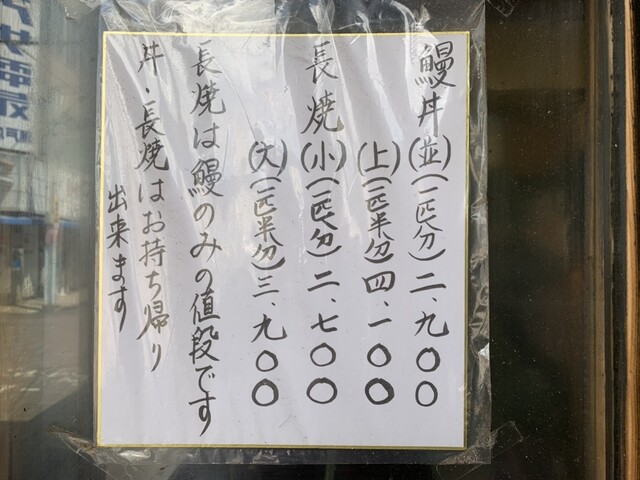 鰻丼(並)(一匹分)二、九〇〇
(上)(一匹半分)四、一〇〇
長焼(小)(一匹分)二、七〇〇
(大)(一匹半分)三、九〇〇
長焼は鰻のみの値段です
丼・長焼はお持ち帰り
出来ます